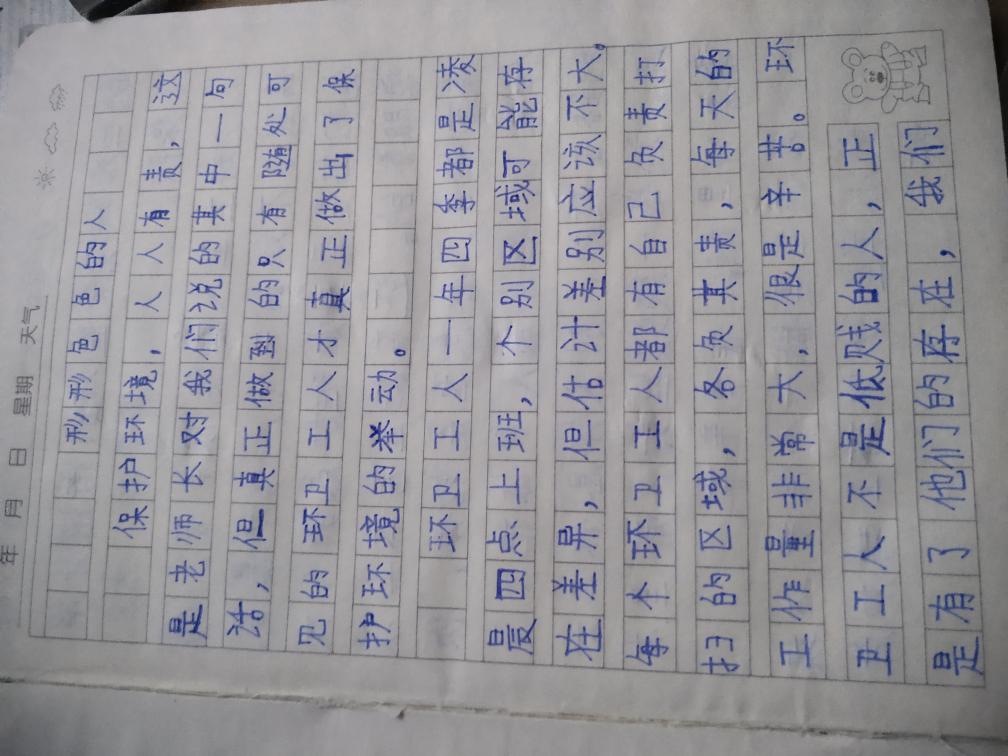 年 月 日 星期 天气
形形色色的人
保护环境，人人有责，这
是老师长对我们说的其中一句
话，但真正做到的只有随处可
见的环卫工人才真正做出了保
护环境的举动。
环卫工人一年四季都是凌
晨四点上班，个别区域可能存
在差异，但估计差别应该不大。
每个环卫工人都有自己负责打
扫的区域，各负其责，每天的
工作量非常大，很是辛苦。环
卫工人不是低贱的人，正
是有了他们的存在，我们